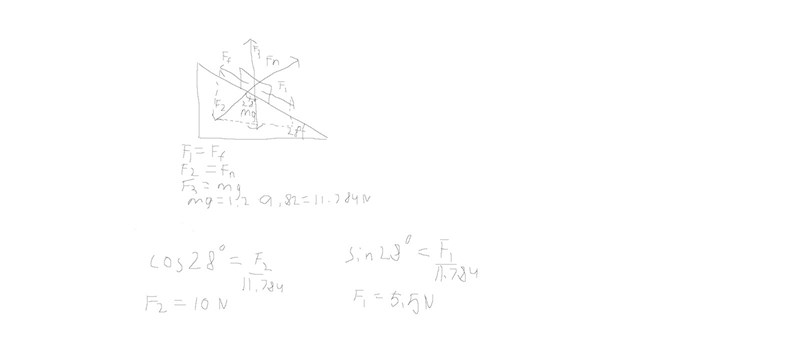 Ff
Fn
F1
F2
28°
mg
28°
F1 = Ff
F2 = Fn
F3 = mg
mg = 1,2 · 9,82 = 11.784N
cos28° = F2/11.784
sin28° = F1/11.784
F2 = 10 N
F1 = 5,5N